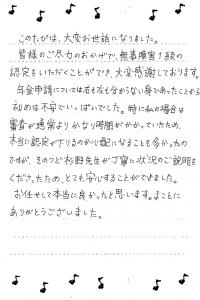 このたびは、大変お世話になりました。
皆様のご尽力のおかげで、無事障害1級の
認定をいただくことができ、大変感謝しております。
年金申請については右も左も分からない身であったことから
初めは不安でいっぱいでした。時に私の場合は
審査が通常よりかなり時間がかかっていたため、
本当に認定が下りるのか心配になることも多かったの
ですが、そのつど杉野先生が丁寧に状況のご説明を
くださったため、とても安心することができました。
お任せして本当に良かったと思います。まことに
ありがとうございました。